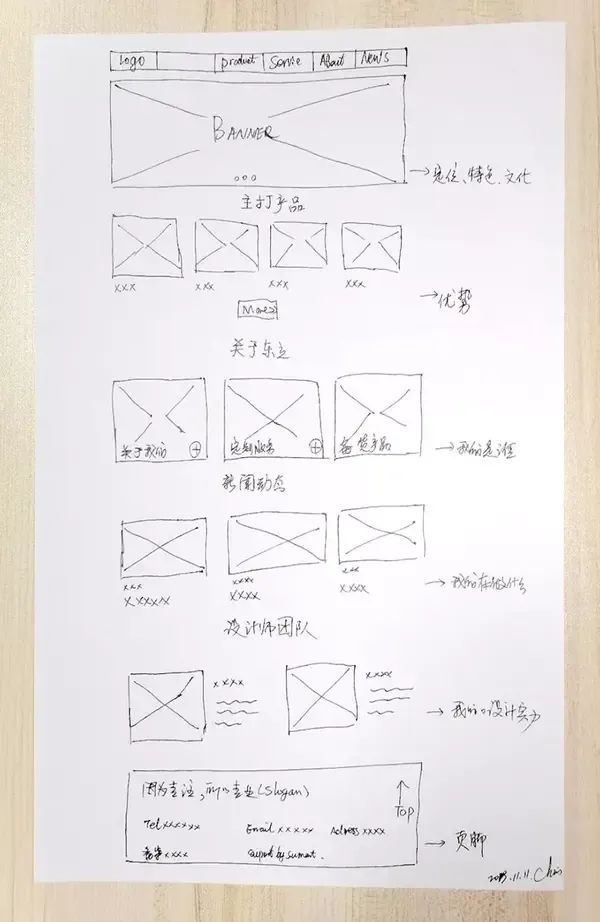 Logo product Servie About News
BANNER
→定位、特色、文化
主打产品
xxx xxx xxx xxx
More >
→优势
关于东立
关于我们 定制服务 产品
→我们是谁
新闻动态
xxx xxxx xxx
xxxxx xxxx xxxx
→我们在做什么
设计师团队
xxxx xxxx
→我们的设计实力
因为专注,所以专业(Slogan)
↑
TOP
Tel xxxxxx Email xxxxx Adress xxxx
xxxx support by sumaat.
→页脚
11.11. Chris